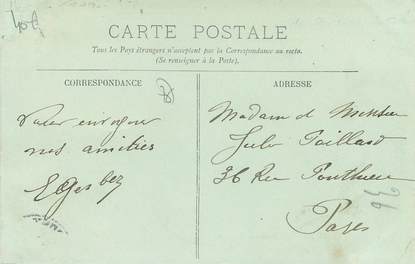 40f
CARTE POSTALE
Tous les Pays étrangers n'acceptent pas la Correspondance au recto.
(Se renseigner à la Poste).
CORRESPONDANCE
ADRESSE
envoyer
nos amitiés
Madame et Monsieur
Jules Paillard
36 Rue Ponthieu
Paris